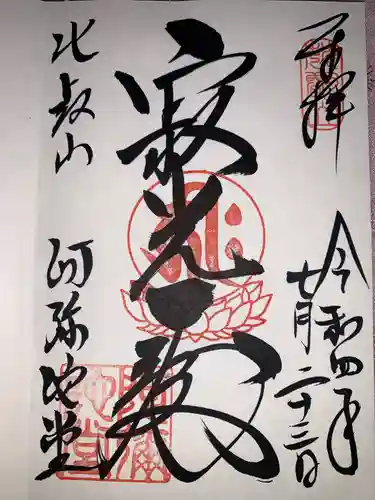 奉拝
令和四年
七月二十三日
寂光殿
比叡山 阿弥陀堂